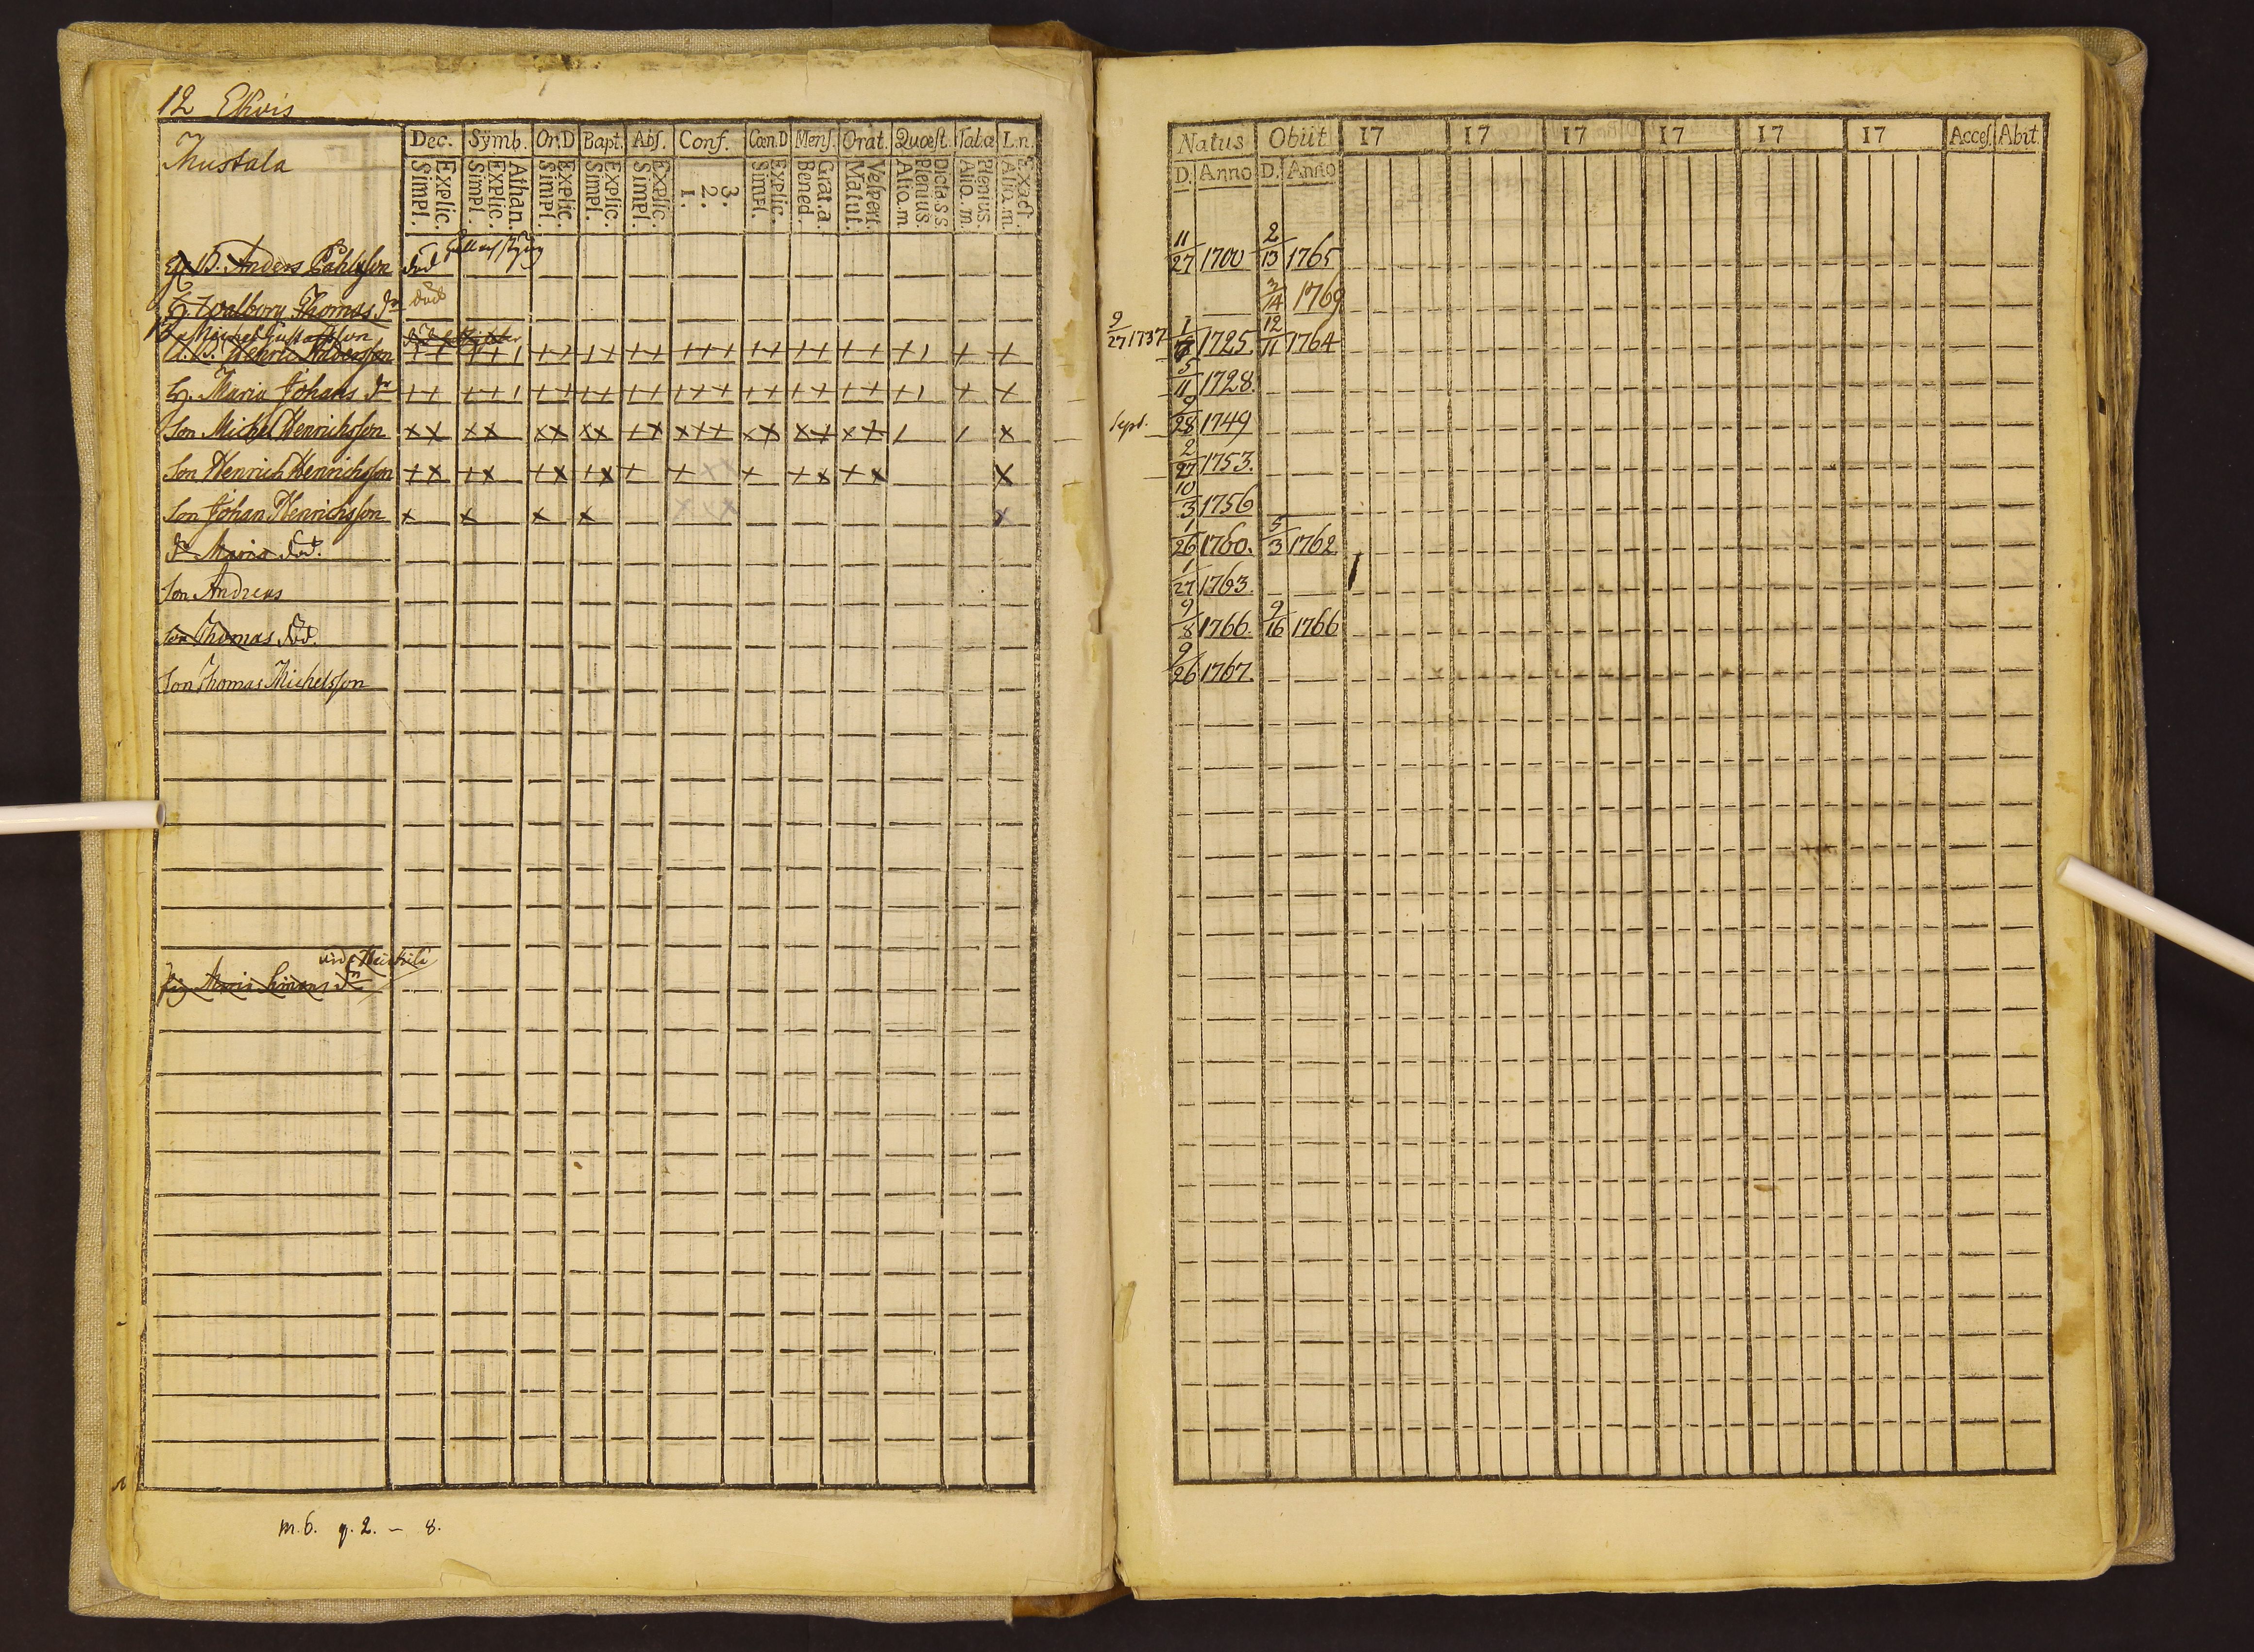 12 Ekvis
Mustala
Dec. Symb. Or.D Bapt. Abs. Conf. Cœn.D Mens. Orat. Quæst. Tabæ L.n.
Simpl. Explic. Simpl. Explic. Athan. Simpl. Explic. Simpl. Explic. Simpl. Explic. 1. 2. 3. Simpl. Explic. Bened. Grat.a. Matut. Vespert. Alio.m. Plenius. Dicta s.s Alio.m. Plenius. Alio.m. Exact.
Natus Obiit 17 17 17 17 17 17 Acces. Abiit
D. Anno D. Anno
B. Anders Påhlsson död 11/27 1700 2/13 1765
H. Walborg Thomas dr död 3/14 1769
Michel Gustafsson 9/27 1737
Henric Andersson 1725. 12/11 1764
H. Maria Johans dr 5/11 1728.
Son Michel Henrichsson Sept. 9/28 1749
Son Henrich Henrichsson 2/27 1753.
Son Johan Henrichsson 10/3 1756
dr Maria död. 1/26 1760. 5/3 1762
Son Andreas 1/27 1763.
Son Thomas död. 9/8 1766. 9/16 1766
Son Thomas Michelsson 9/26 1767.
Maria Simons dr
m.6. q.2. – 8.